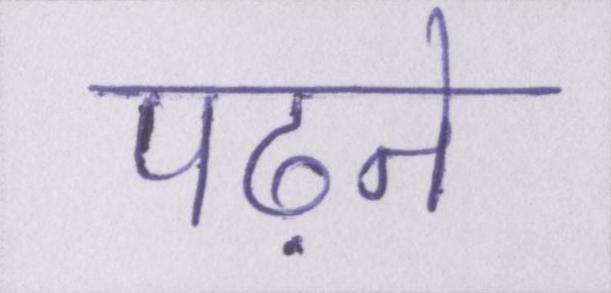 पढ़ने